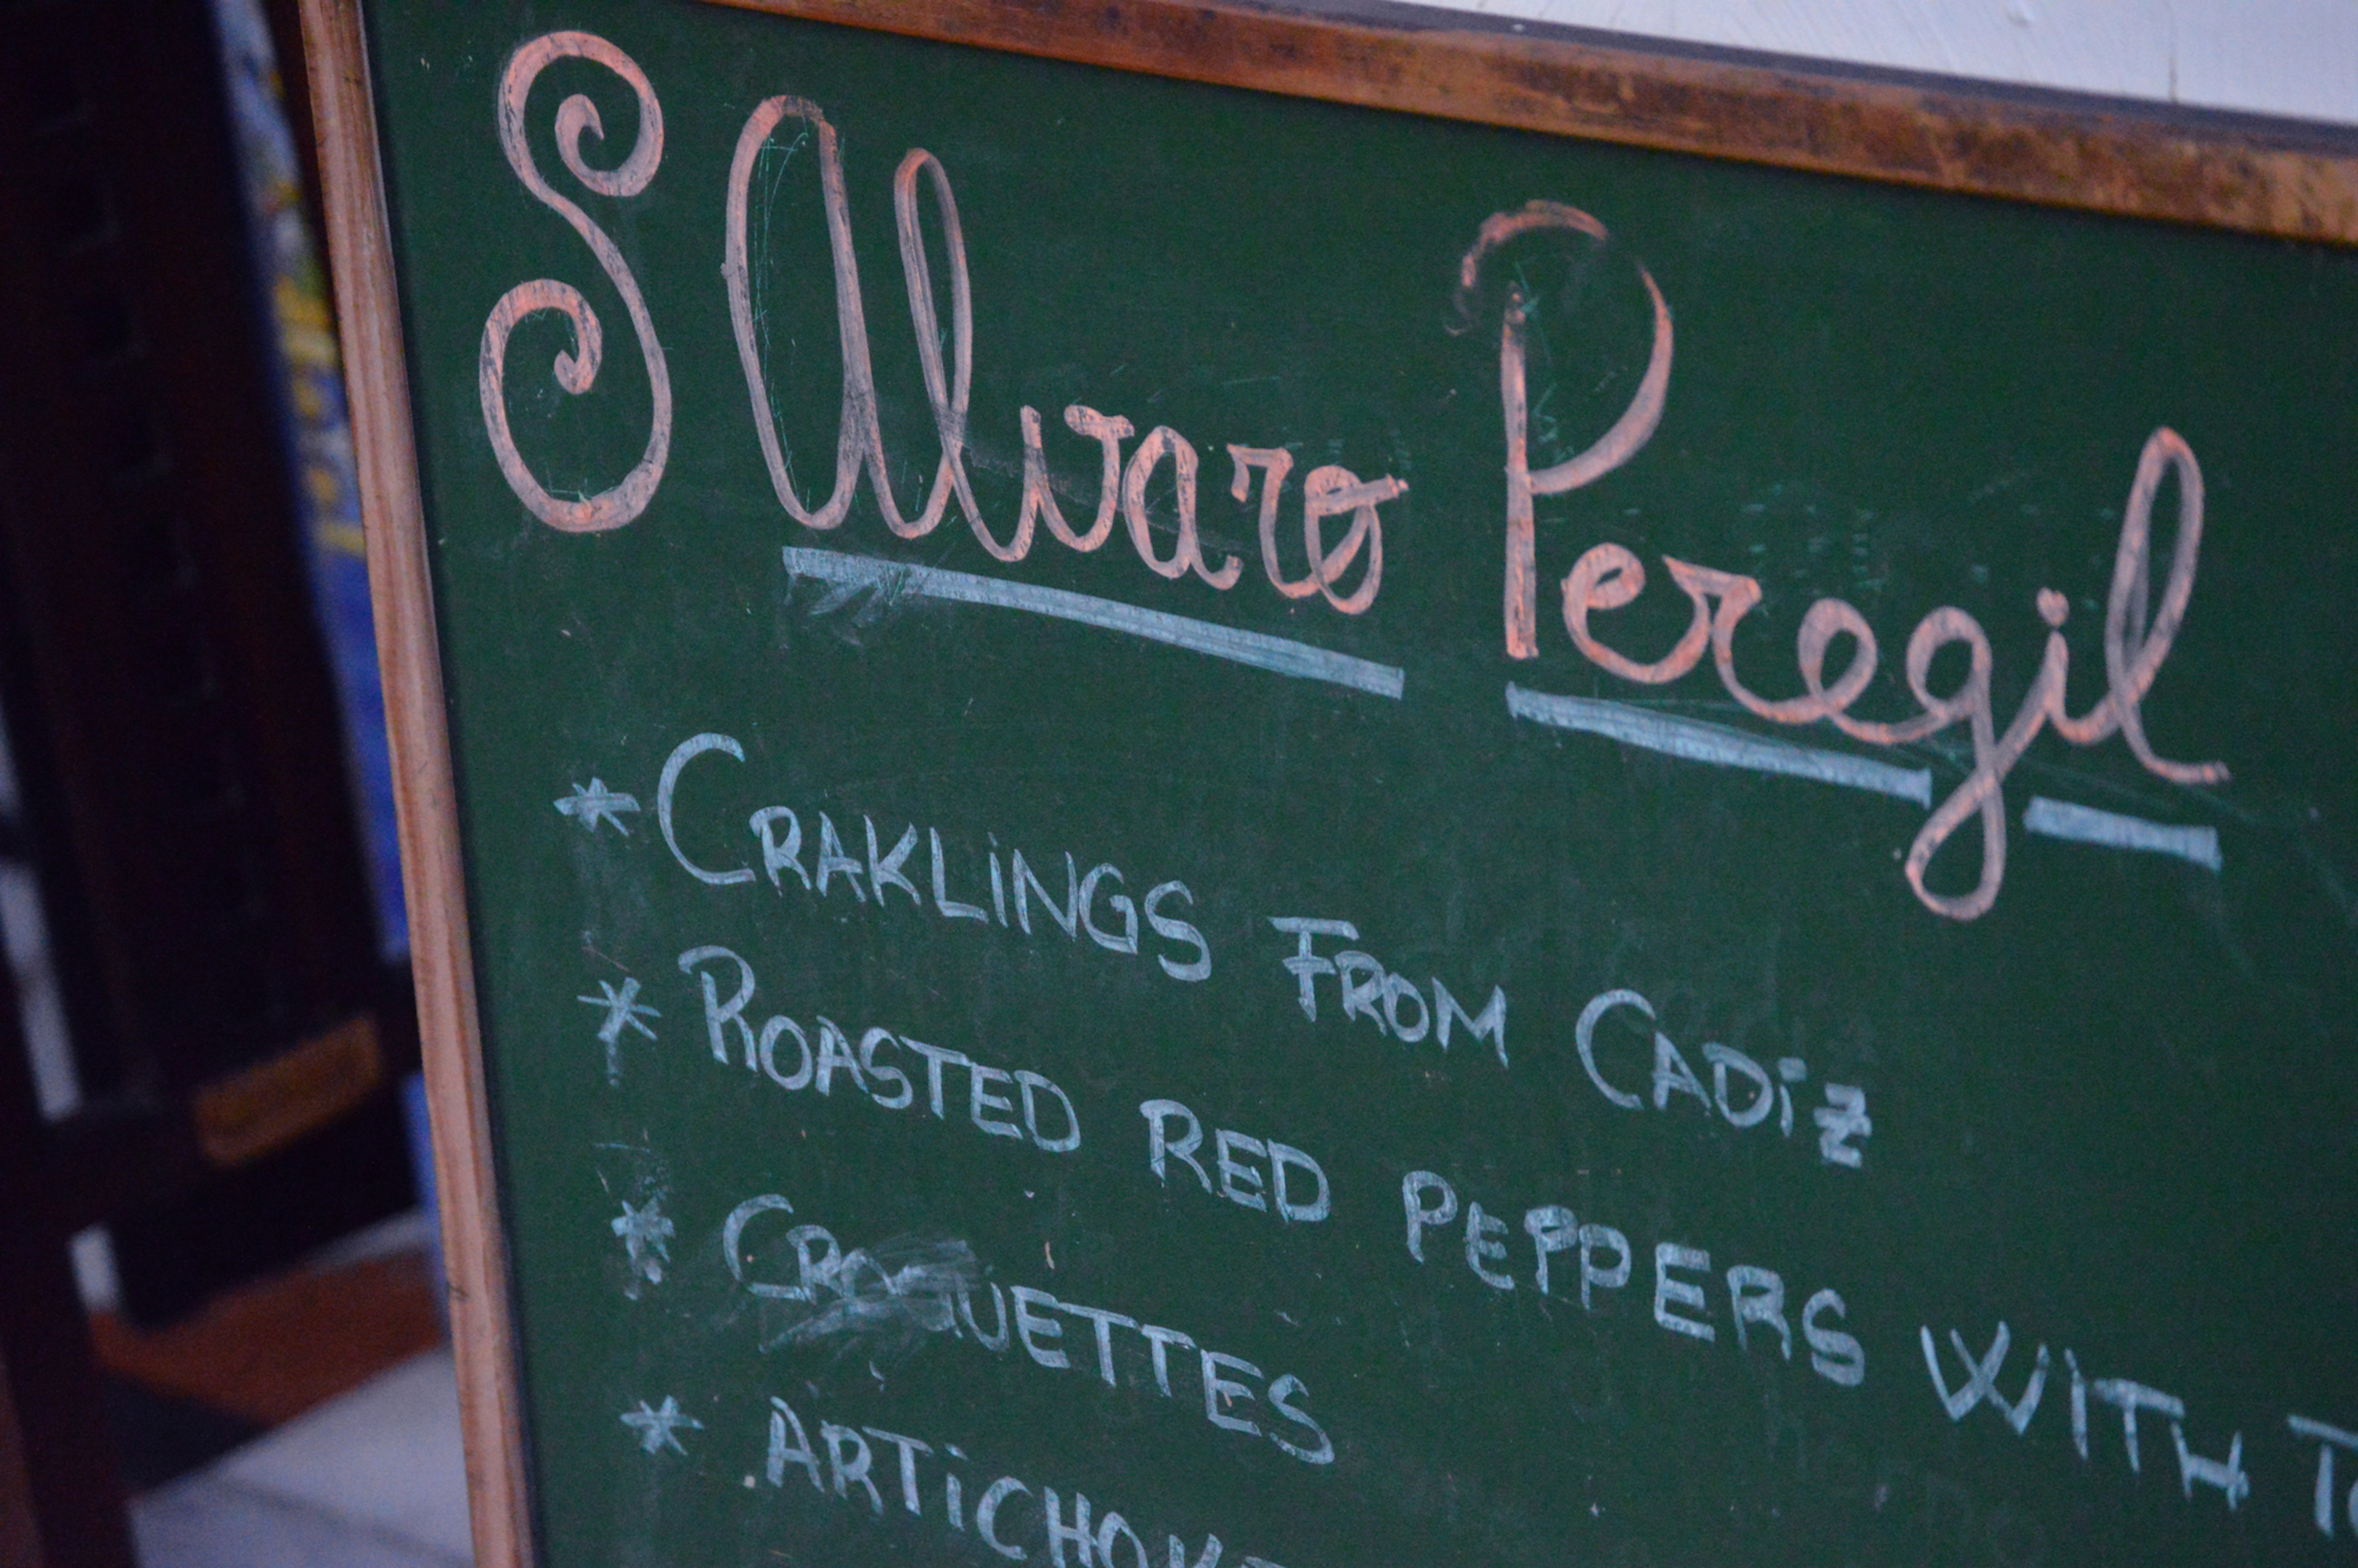 S Alvaro Peregil
* CRAKLiNGS FROM CADiZ
* ROASTED RED PEPPERS WiTH
* CROQUETTES
* ARTiCHOKE